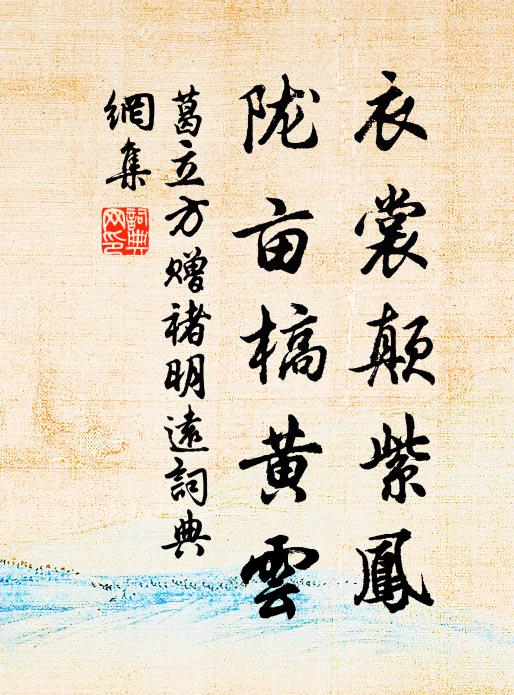 衣裳颠紫鳳
陇亩槁黄雲
葛立方赠褚明遠詞典
網集
詞典
网印